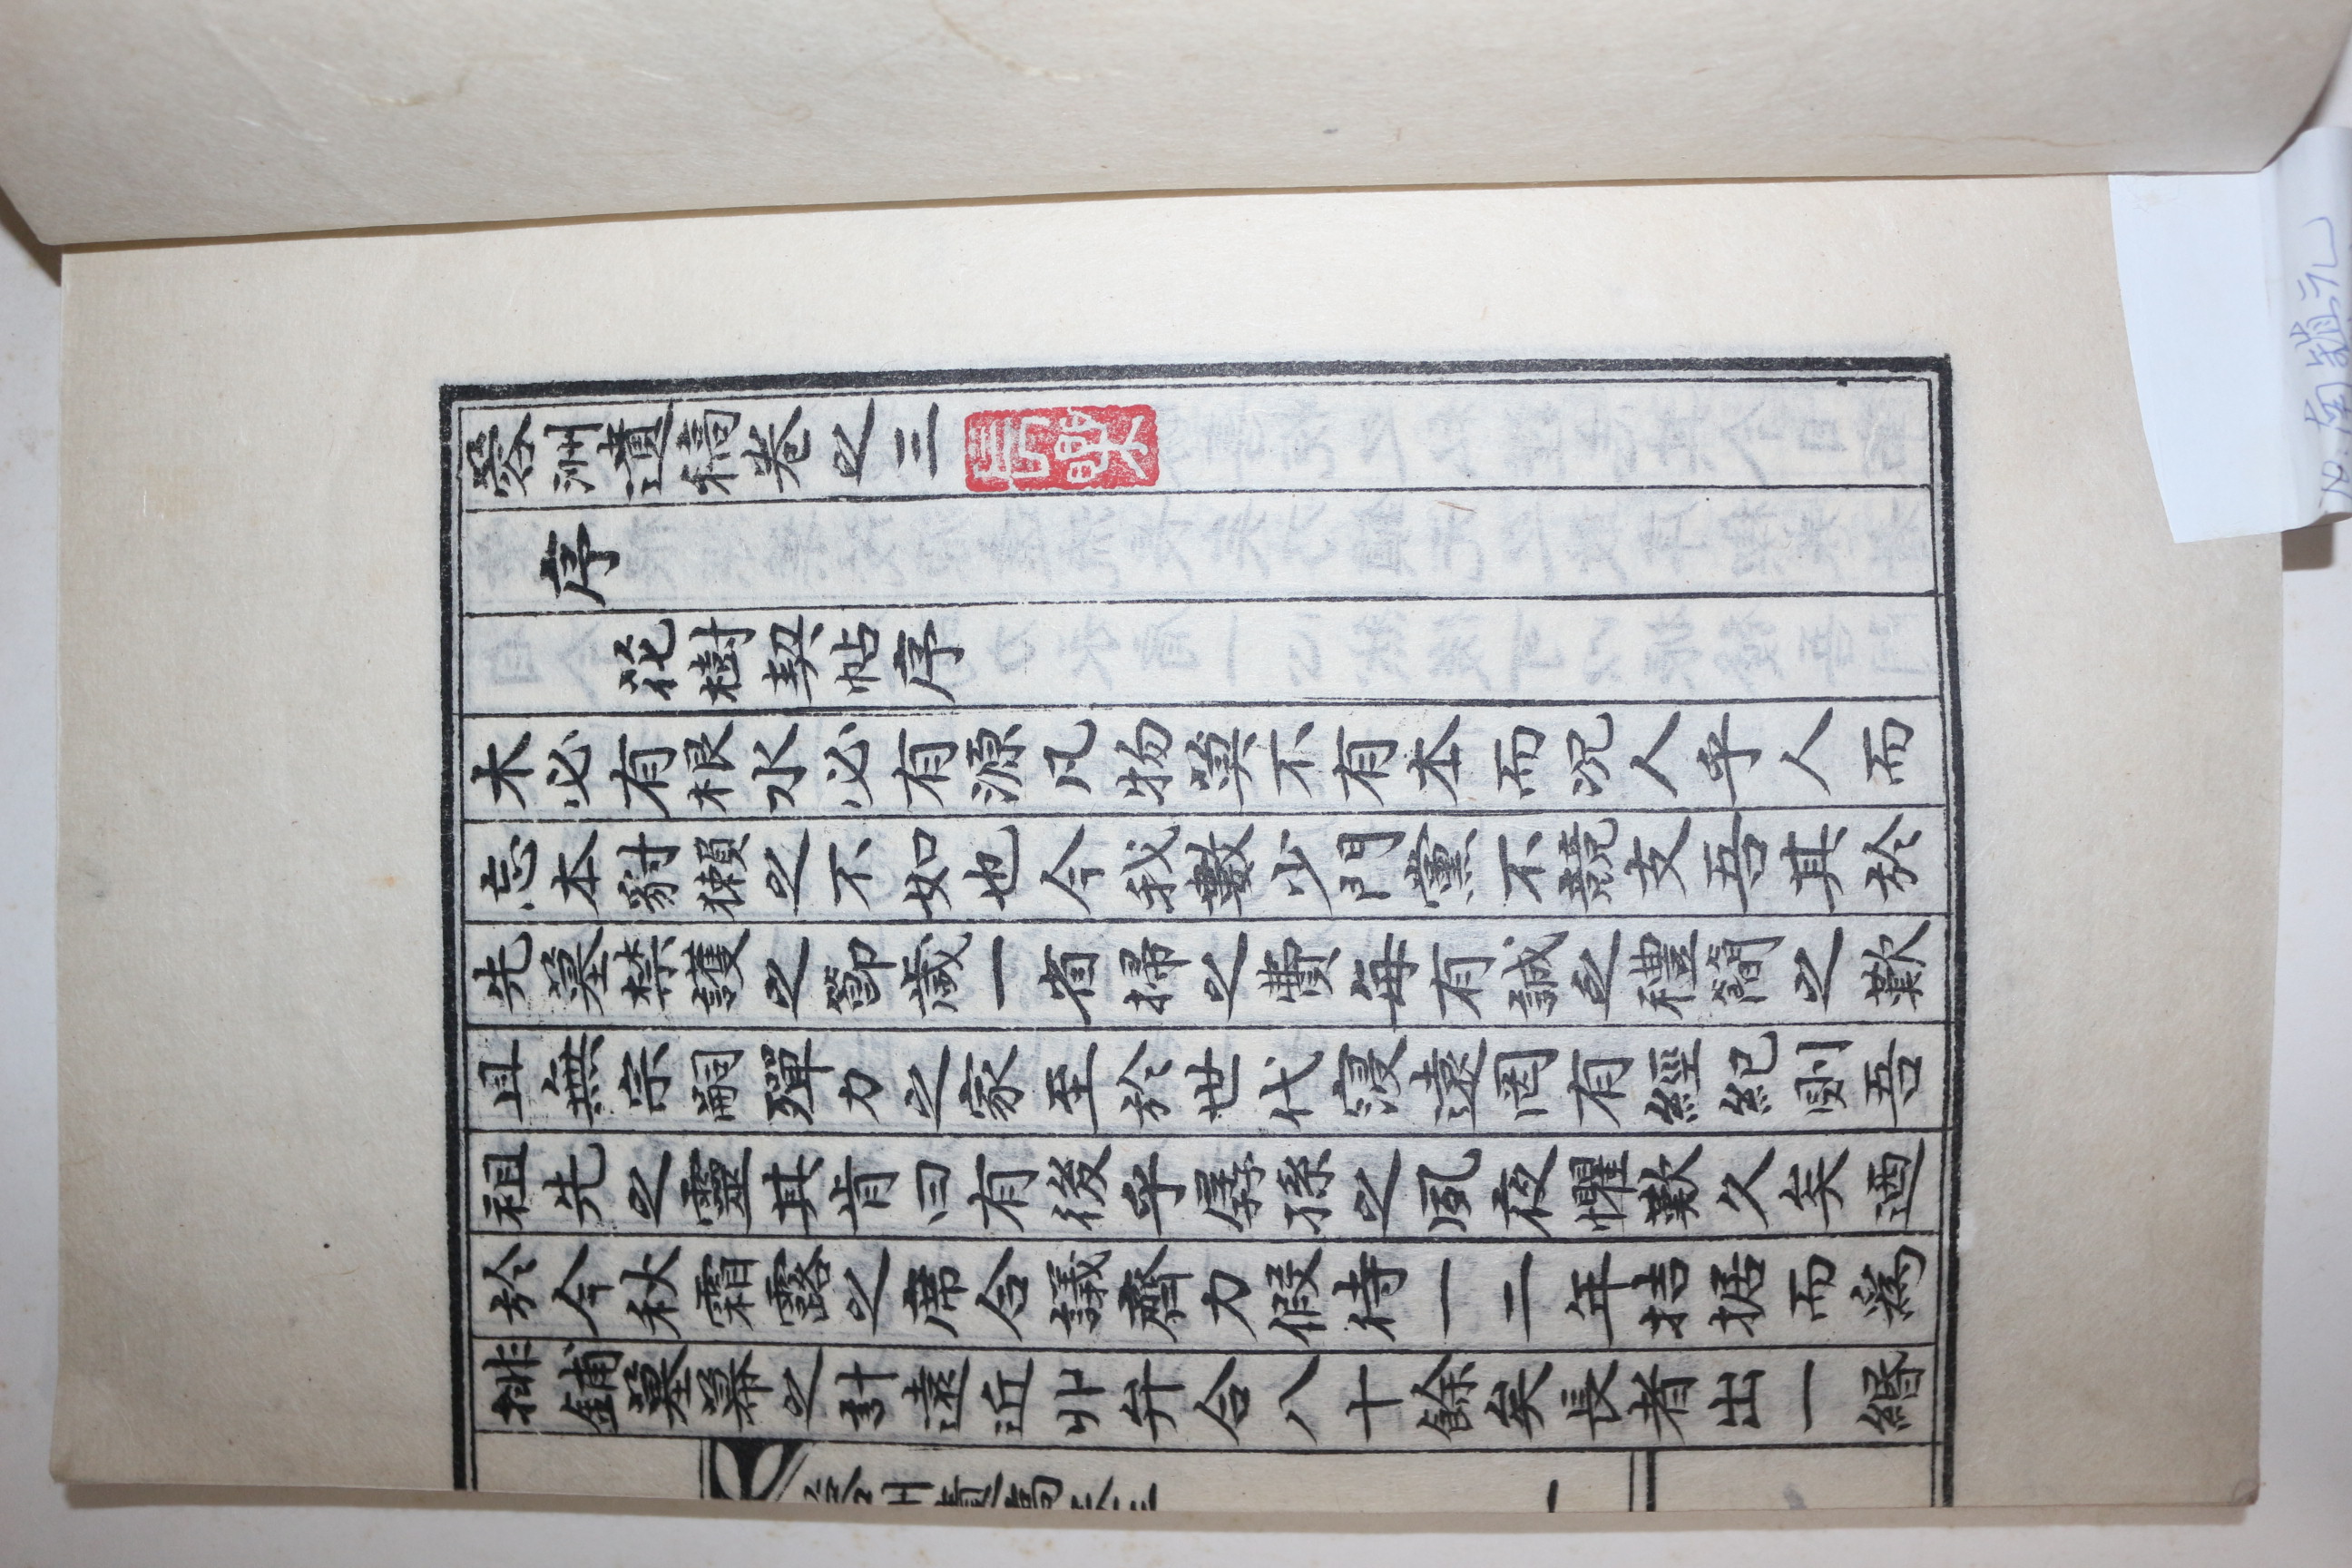 蓉洲遺稿卷之三
長樂
序
花樹契帖序
木必有根水必有源凡物莫不有本而况人乎人而
忘本豺獺之不如也今我數少門黨不競支吾其於
先墓禁護之節歲一省掃之費每有誠乏禮簡之歎
且無宗嗣殫力之家至於世代寖遠罔有經紀則吾
祖先之靈其肯曰有後乎孱孫之夙夜懼歎久矣迺
於今秋霜露之席合議齊力假待一二年拮据而爲
排鋪墓幕之計遠近丱弁合八十餘矣長者出一緡
蓉洲遺稿卷三
一
南鎮元